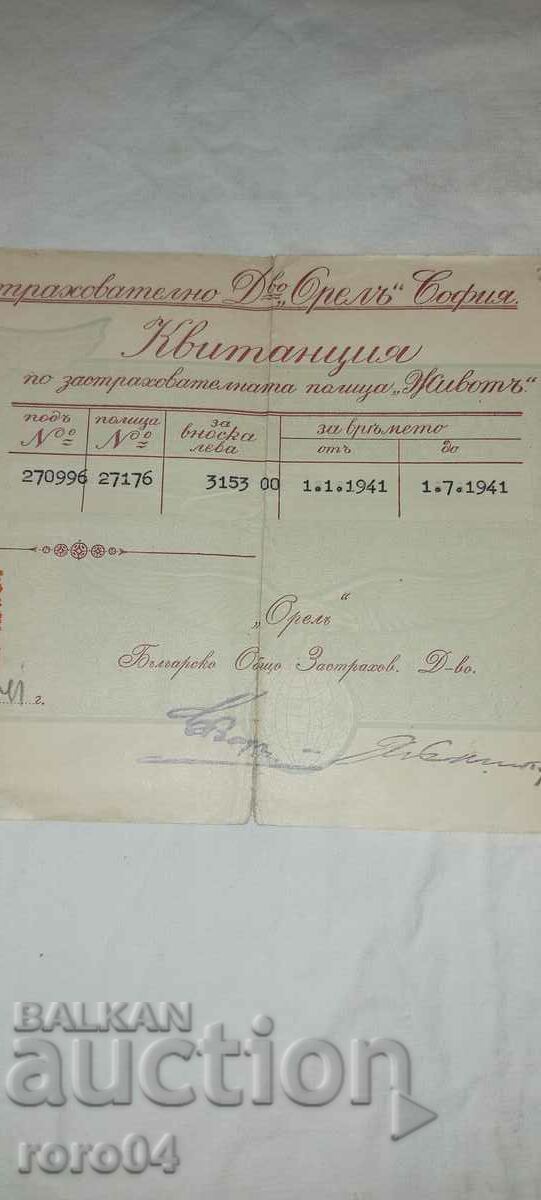 трахователно Дво „Орелъ“ София.
Квитанция
по застрахователната полица „Животъ“
подъ № полица № за вноска лева за връмето отъ до
270996 27176 3153 00 1.1.1941 1.7.1941
„Орелъ“
Българско Общо Застрахов. Д-во.
41 г.
BALKAN
auction
roro04